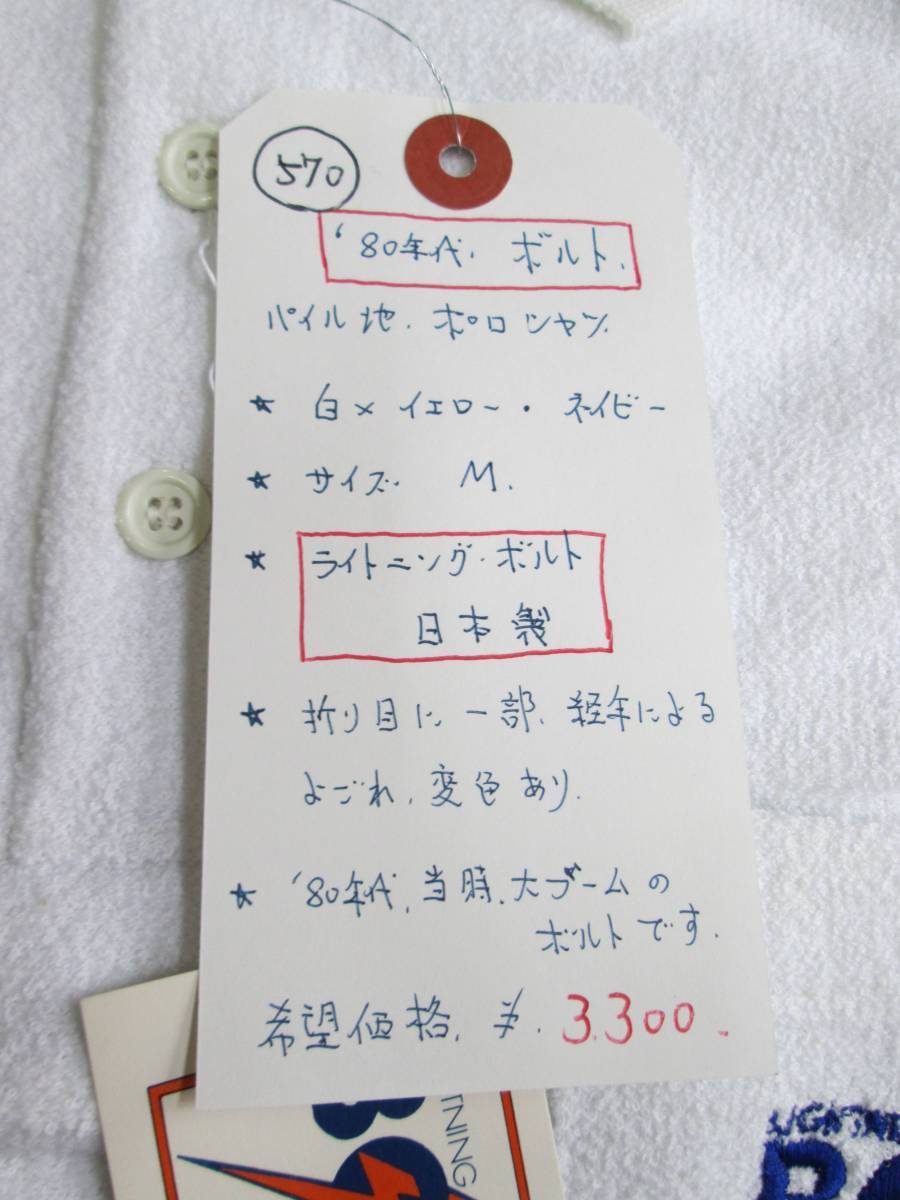 570
'80年代. ボルト.
パイル地. ポロシャツ.
★ 白×イエロー・ネイビー
★ サイズ. M.
★ ライトニング・ボルト
日本製
★ 折り目に一部、経年による
よごれ、変色あり.
★ '80年代、当時、大ブームの
ボルトです.
希望価格、¥. 3.300.
TNING
BO
LIGHTNI
BO